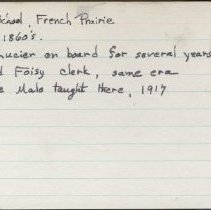 School, French Prairie
1860's.
Lucier on board for several years
Foisy clerk, same era
Malo taught there, 1917